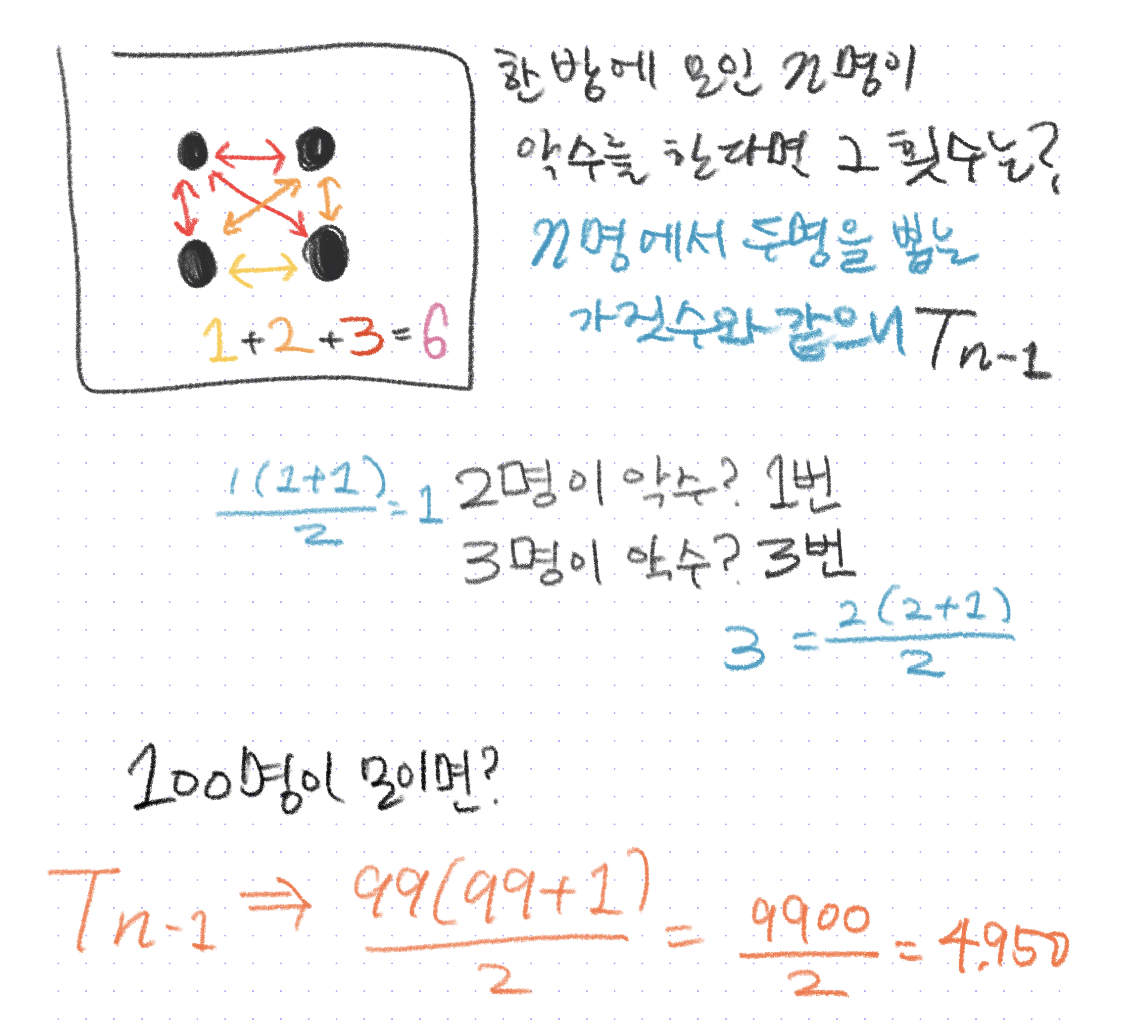 한 방에 모인 n명이
악수를 한다면 그 횟수는?
n명에서 두명을 뽑는
가짓수와 같으니 Tn-1
1+2+3=6
1(1+1)/2=1 2명이 악수? 1번
3명이 악수? 3번
3 = 2(2+1)/2
100명이 모이면?
Tn-1 ⇒ 99(99+1)/2 = 9900/2 = 4.950